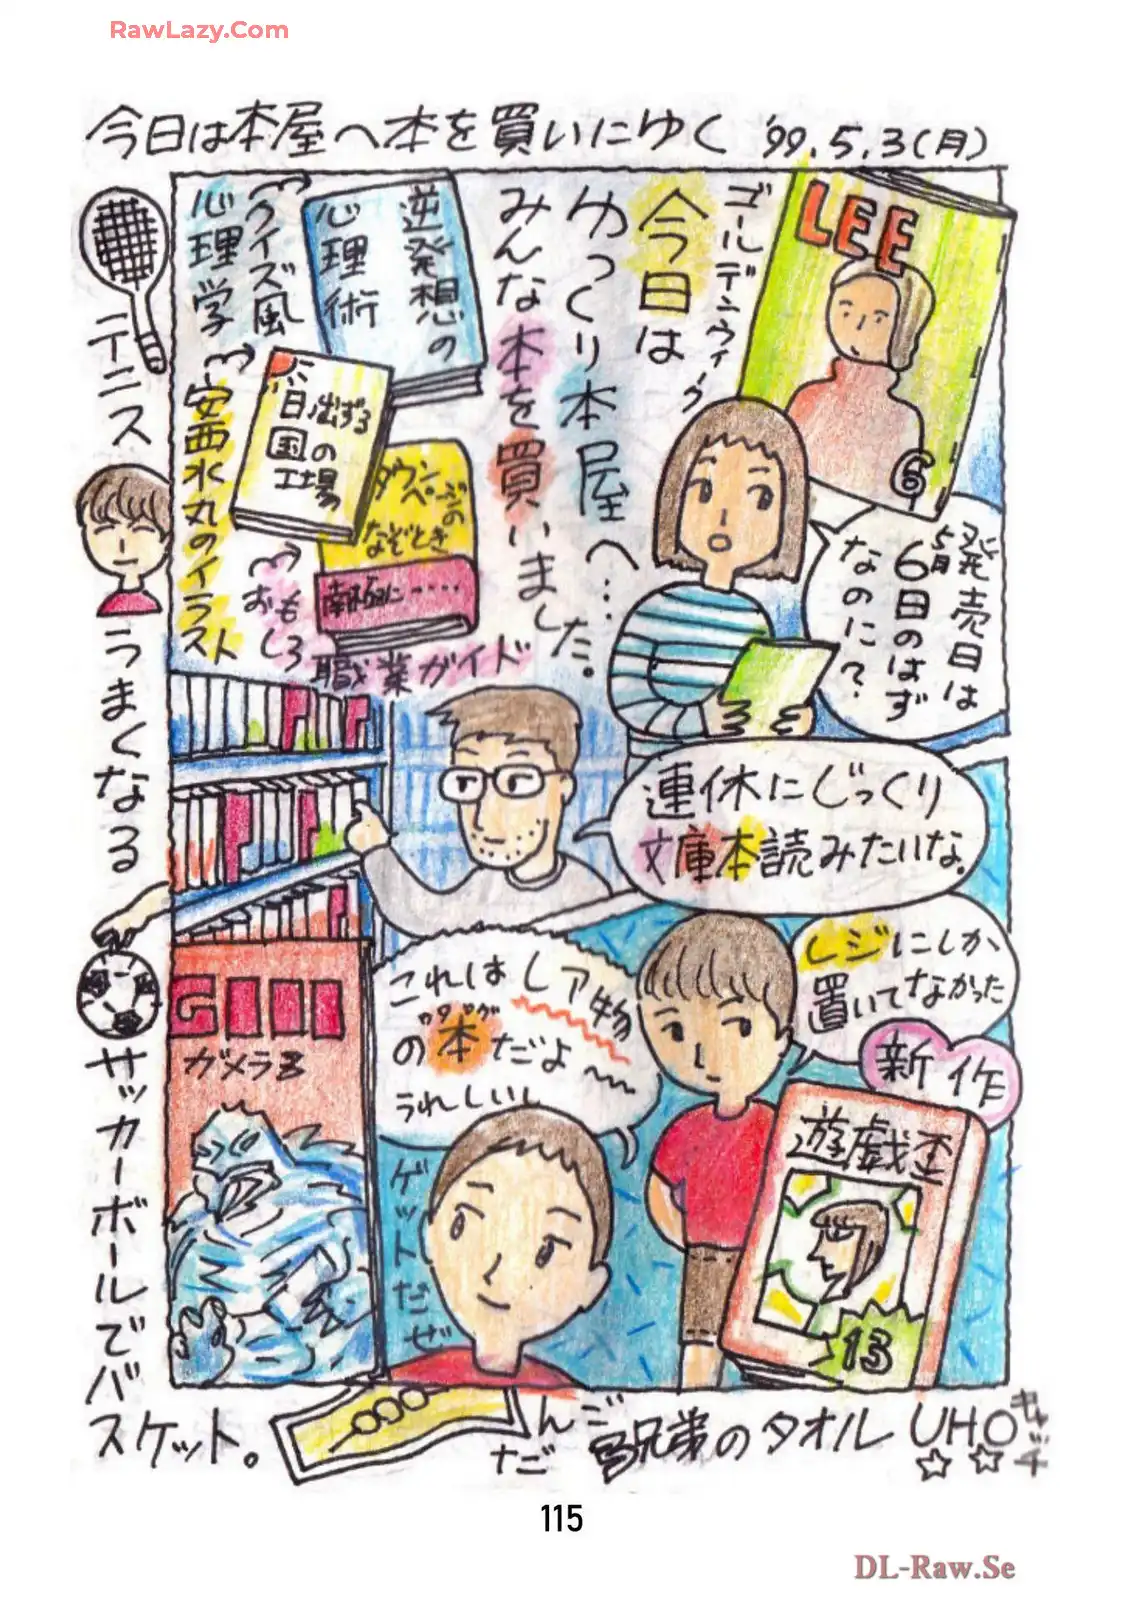 RawLazy.Com
今日は本屋へ本を買いにゆく '99.5.3(月)
LEE
6
ゴールデンウィーク
今日は
ゆっくり本屋へ…
みんな本を買いました。
逆発想の
心理術
クイズ風
心理学
日出ずる
国の
工場
安西水丸のイラスト
タウン
ページの
なぞとき
南極に……
おもしろ
職業ガイド
発売日は
5月
6日のはず
なのに?
連休にじっくり
文庫本読みたいな。
レジにしか
置いてなかった
新作
遊戯王
13
これはレア物
の本だよ
うれしいし
ゲットだぜ
ガメラ3
テニス
うまくなる
サッカーボールでバ
スケット。
だんご
3兄弟のタオル
UHO
キャッチ
115
DL-Raw.Se